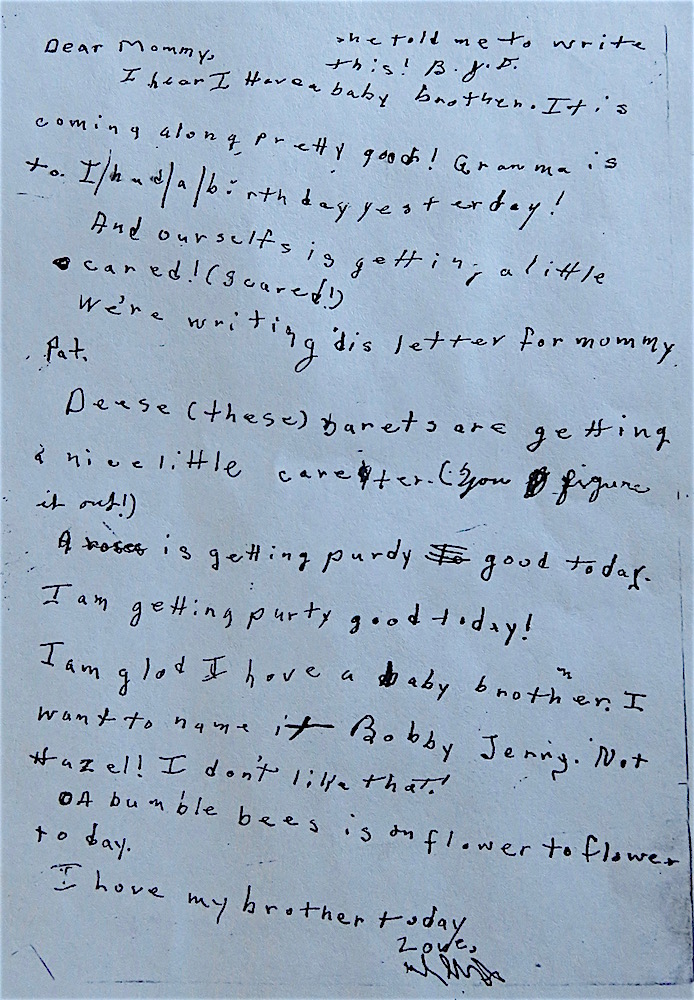 Dear Mommy,
she told me to write
this! B.J.F.
I hear I Have a baby brother. It is
coming along pretty good! Granma is
to. I/had/a/birthday yesterday!
And ourselfs is getting a little
cared! (scared!)
We're writing dis letter for mommy
Pat.
Dease (these) barets are getting
a nice little carekter. (you figure
it out!)
A roses is getting purdy good today.
I am getting purty good today!
I am glad I have a baby brother. I
want to name it Bobby Jerry. Not
Hazel! I don't like that!
A bumble bees is on flower to flower
today.
I have my brother today
Love,